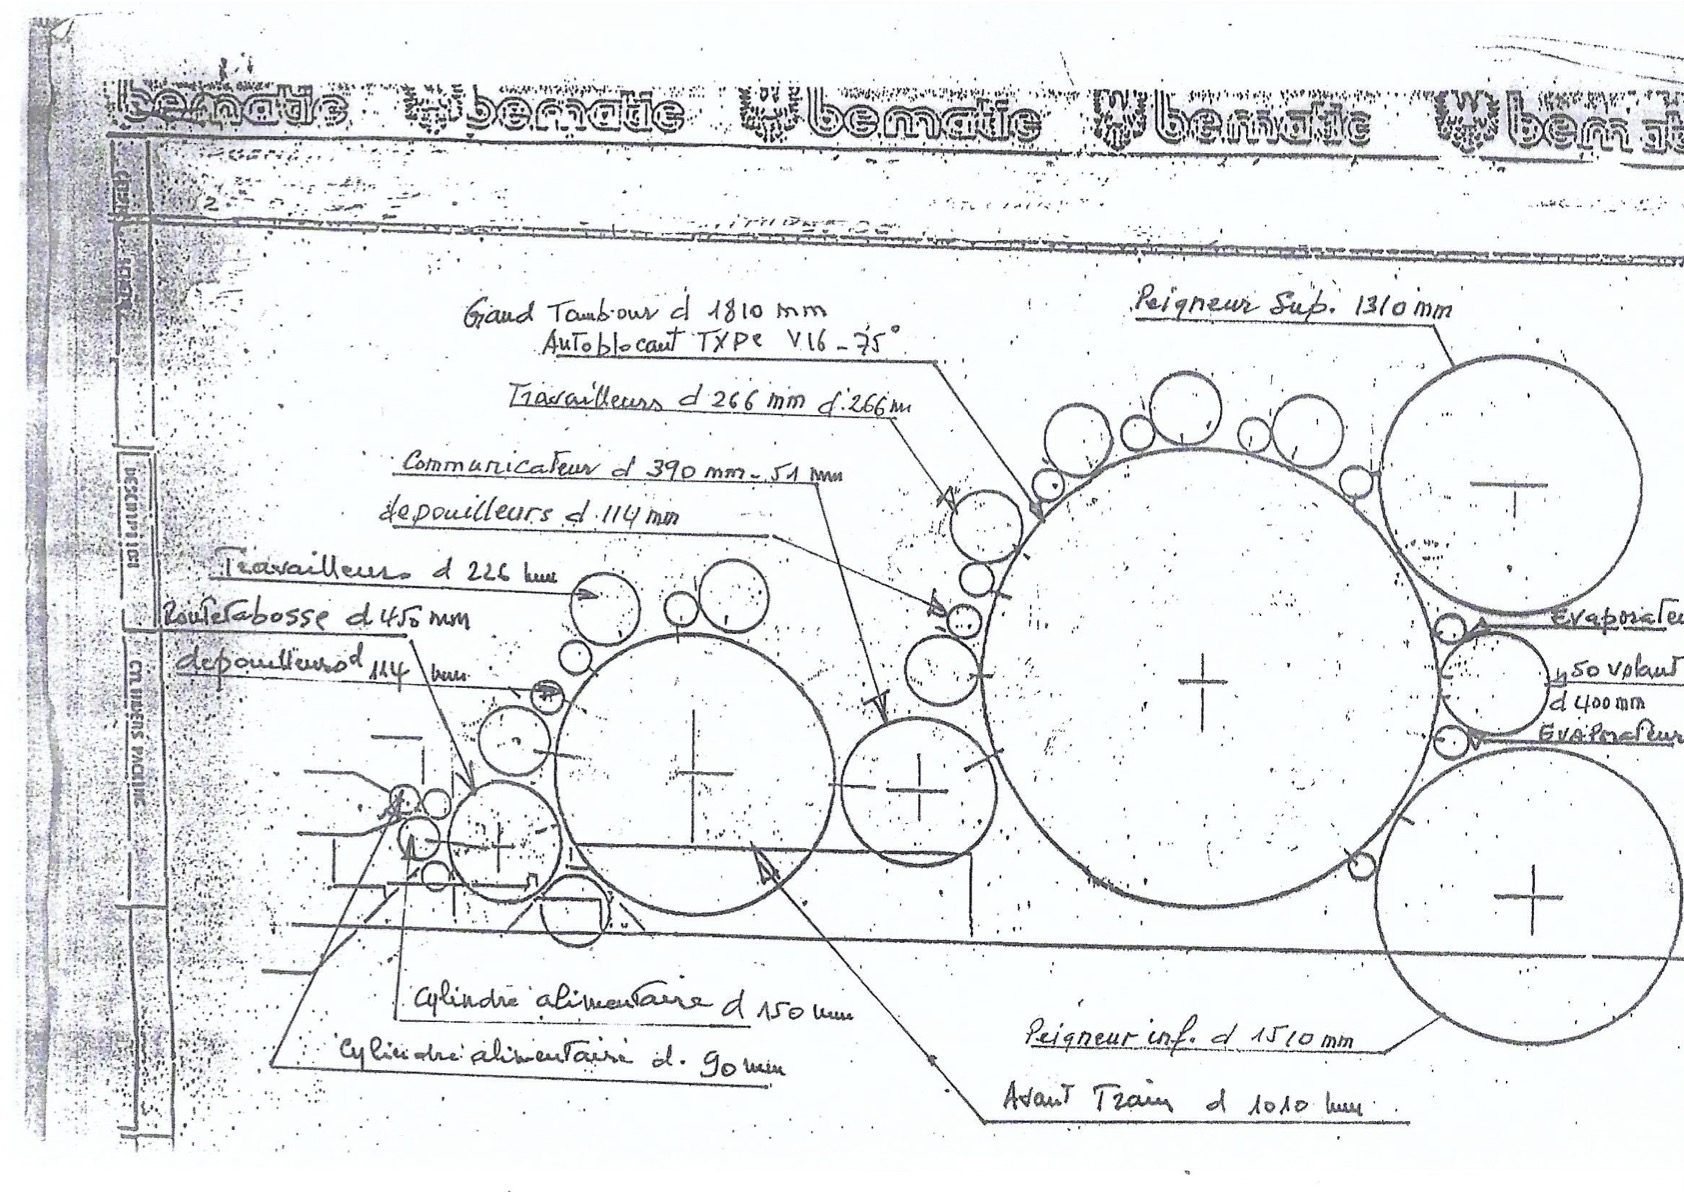 bematic bematic bematic bematic bemat
Gand Tambour d 1810 mm
Autoblocant TYPe V16 - 75°
Peigneur Sup. 1310 mm
Travailleurs d 266 mm d.266 m
Communicateur d 390 mm - 51 mm
depouilleurs d.114 mm
Travailleurs d 226 mm
Routetabosse d 450 mm
depouilleurs d 114 mm
Evaporateu
50 Volant
d 400 mm
Evaporateur
DESCRIPTION
Cylindre alimentaire d 150 mm
Cylindre alimentaire d. 90 mm
Peigneur inf. d 1510 mm
Avant Train d 1010 mm